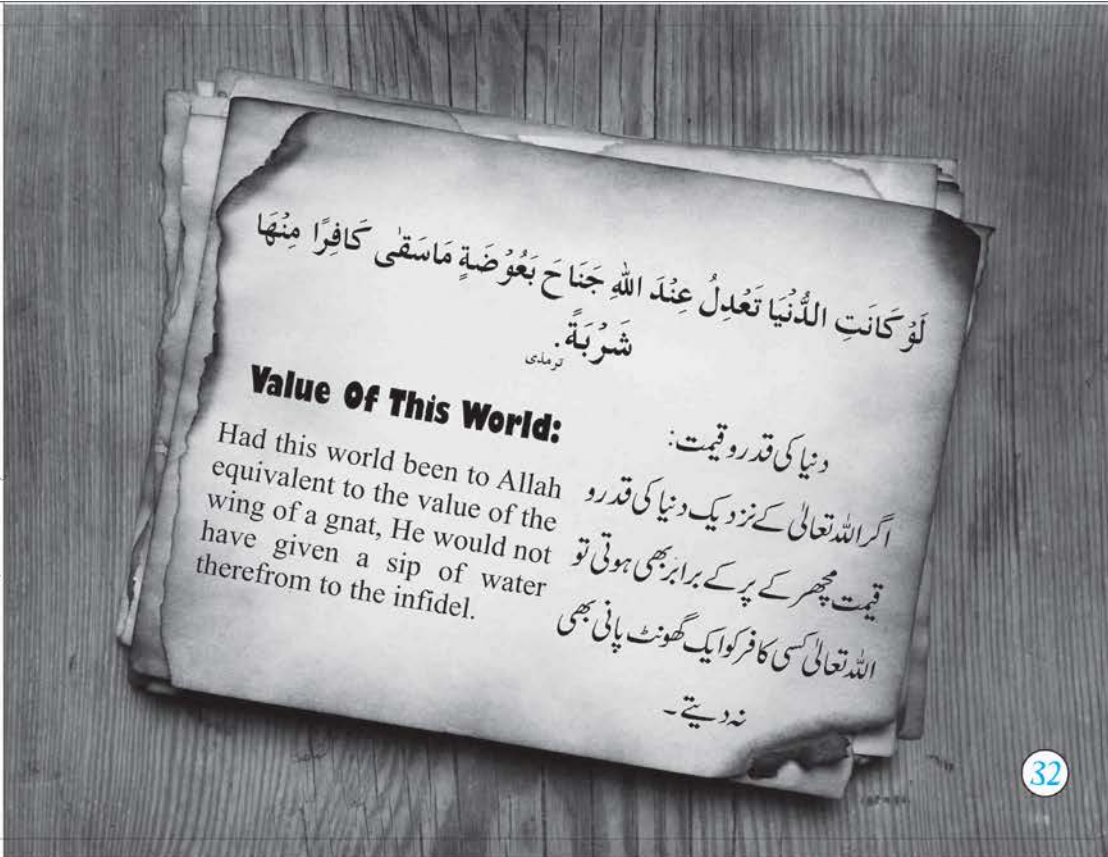 لَوْ كَانَتِ الدُّنْيَا تَعْدِلُ عِنْدَ اللهِ جَنَاحَ بَعُوْضَةٍ مَاسَقٰى كَافِرًا مِنْهَا
شَرْبَةً.
ترمذی
Value Of This World:
Had this world been to Allah
equivalent to the value of the
wing of a gnat, He would not
have given a sip of water
therefrom to the infidel.
دنیا کی قدر و قیمت:
اگر اللہ تعالٰی کے نزدیک دنیا کی قدر و
قیمت مچھر کے پر کے برابر بھی ہوتی تو
اللہ تعالٰی کسی کافر کو ایک گھونٹ پانی بھی
نہ دیتے۔
32